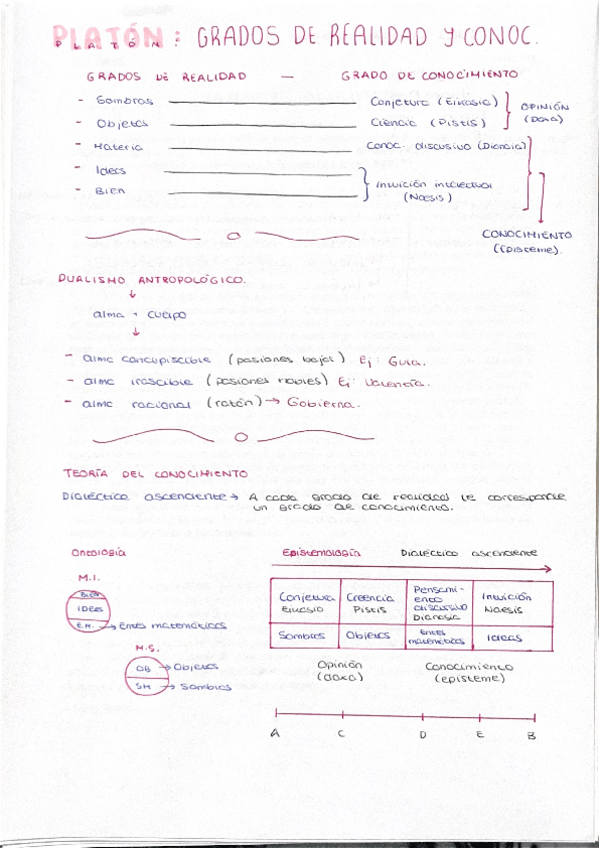 PLATÓN: GRADOS DE REALIDAD Y CONOC.
GRADOS DE REALIDAD — GRADO DE CONOCIMIENTO
- Sombras Conjetura (Eikasia)
- Objetos Ciencia (Pistis)
OPINIÓN
(Doxa)
- Materia Conoc. discusivo (Dianoia)
- Ideas
- Bien
Intuición intelectual
(Noesis)
CONOCIMIENTO
(Episteme).
DUALISMO ANTROPOLÓGICO.
↓
alma + cuerpo
↓
- alma concupiscible (pasiones bajas) Ej: Gula.
- alma irascible (pasiones nobles) Ej: Valentía.
- alma racional (razón) → Gobierna.
TEORÍA DEL CONOCIMIENTO
Dialéctica ascendente → A cada grado de realidad le corresponde
un grado de conocimiento.
Ontología
M.I.
BIEN
IDEAS
E.M. → Entes matemáticos
M.S.
OB → Objetos
SM → Sombras
Epistemología Dialéctica ascendente
Conjetura
Eikasia
Creencia
Pistis
Pensami-
ento
discursivo
Dianoia
Intuición
Noesis
Sombras Objetos Entes
matemáticos Ideas
Opinión
(doxa)
Conocimiento
(episteme)
A C D E B